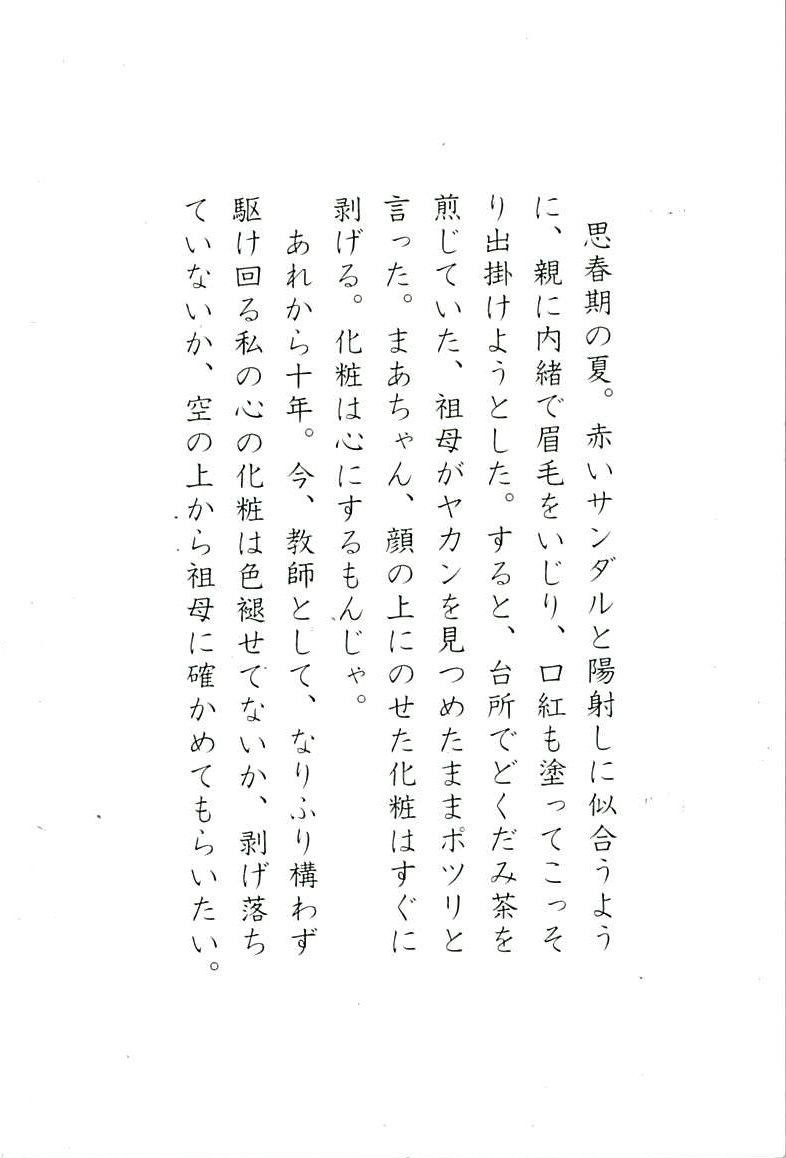 思春期の夏。赤いサンダルと陽射しに似合うよう
に、親に内緒で眉毛をいじり、口紅も塗ってこっそ
り出掛けようとした。すると、台所でどくだみ茶を
煎じていた、祖母がヤカンを見つめたままポツリと
言った。まあちゃん、顔の上にのせた化粧はすぐに
剥げる。化粧は心にするもんじゃ。
あれから十年。今、教師として、なりふり構わず
駆け回る私の心の化粧は色褪せてないか、剥げ落ち
ていないか、空の上から祖母に確かめてもらいたい。